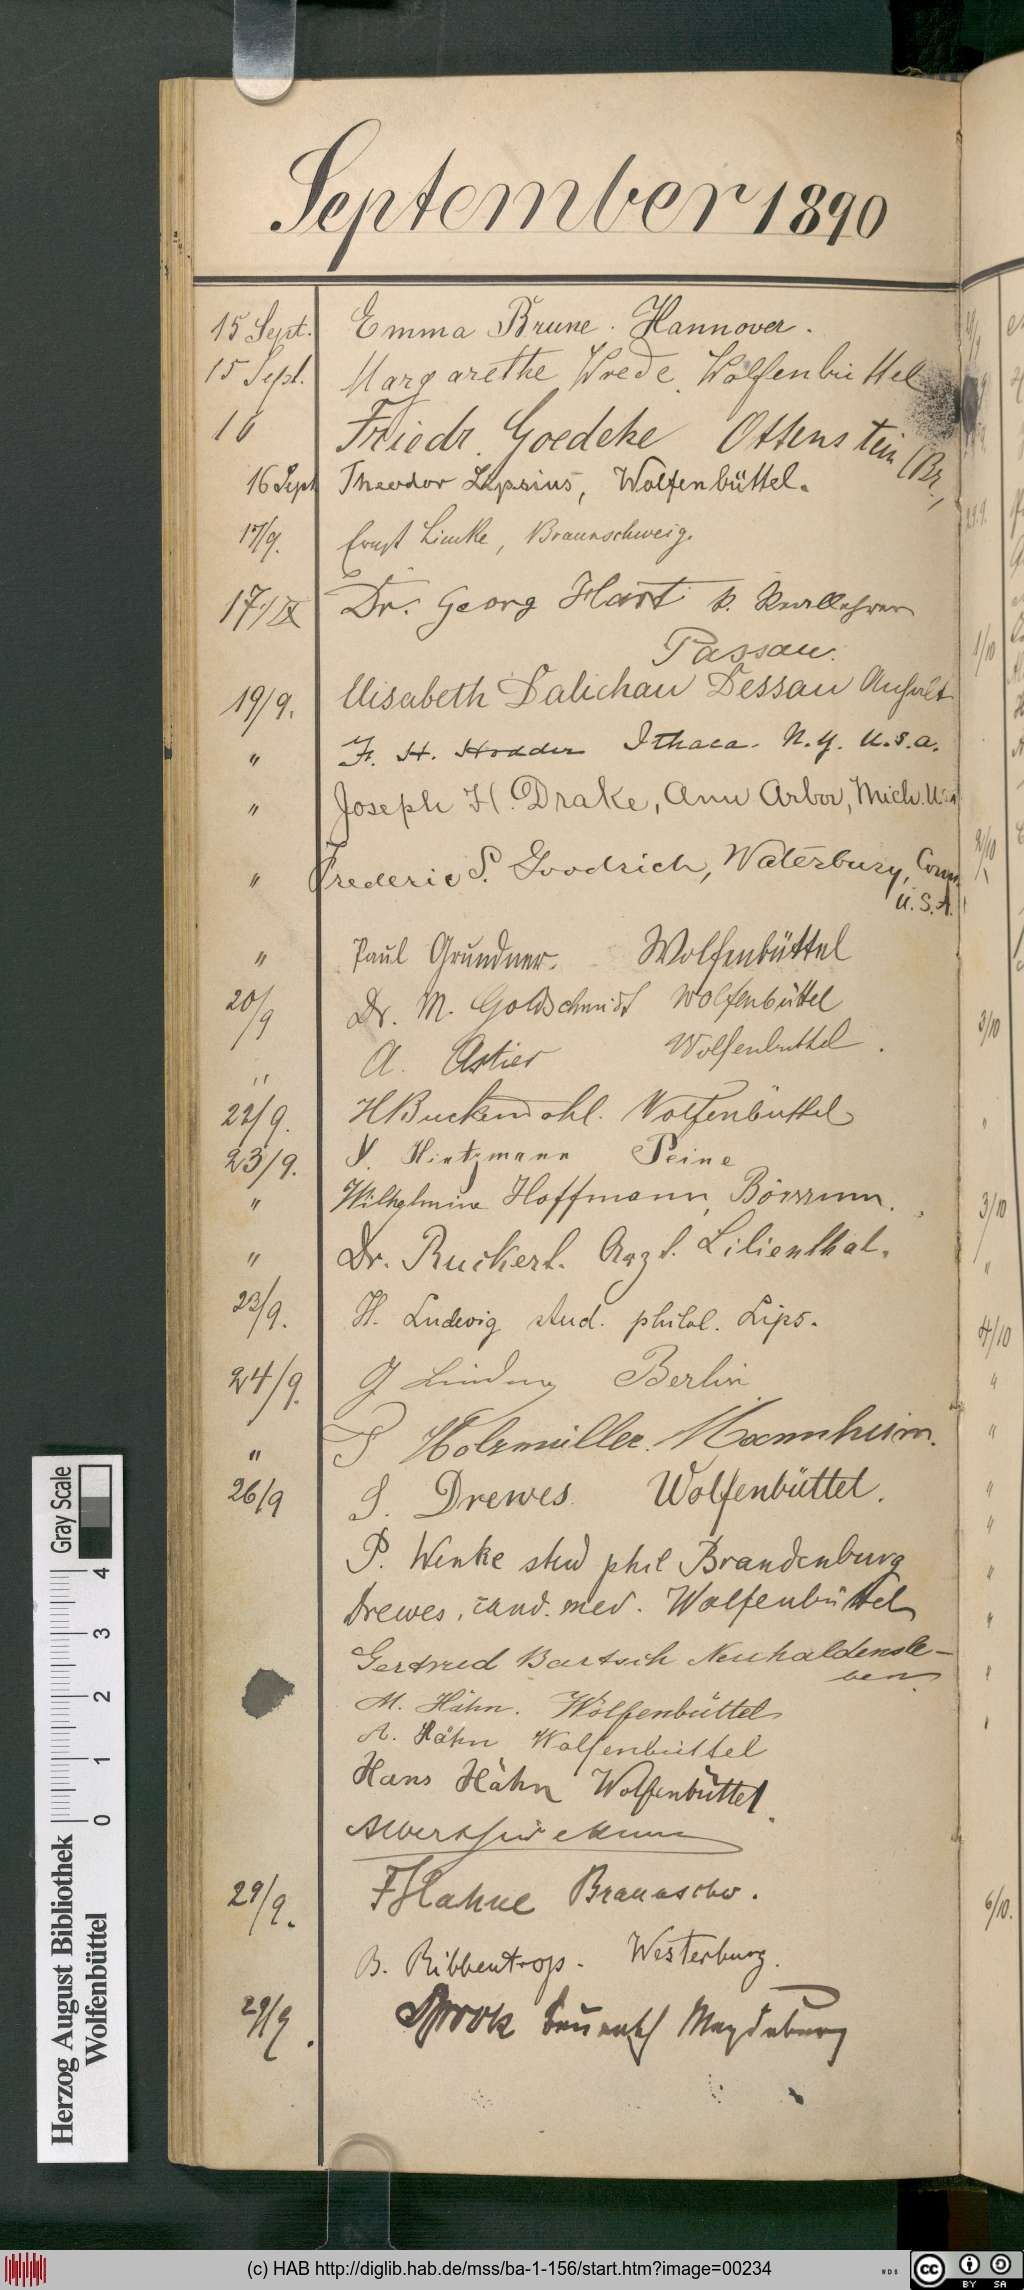 September 1890
15 Sept. Emma Brune. Hannover.
15 Sept. Margarethe Wrede. Wolfenbüttel
16 Friedr. Goedeke Ottenstein (Br.)
16 Sept Theodor Lepsius, Wolfenbüttel.
17/9. Ernst Limke, Braunschweig.
17/IX Dr. Georg Hart k.
Passau.
19/9. Elisabeth Dalichau Dessau Anhalt
" F. H. Hodder Ithaca. N.Y. U.S.A.
" Joseph H. Drake, Ann Arbor, Mich. U.S.A
" Frederic S. Goodrich, Waterbury, Conn
U.S.A.
" Paul Grundner. Wolfenbüttel
20/9 Dr. M. Goldschmidt Wolfenbüttel
" A. Astier Wolfenbuttel.
22/9. H Buckendahl. Wolfenbüttel
23/9. Hintzmann Peine
" Wilhelmine Hoffmann, Börssum.
" Dr. Ruckert. Arzt. Lilienthal.
23/9. H. Ludewig stud. philol. Lips.
24/9. Berlin
" Holzmüller. Mannheim.
26/9 S. Drewes. Wolfenbüttel.
P. Wenke stud phil Brandenburg
Drewes, cand. med. Wolfenbüttel
Gertrud Bartsch Neuhaldensle-
ben.
M. Hähn. Wolfenbüttel
A. Hähn Wolfenbüttel
Hans Hähn Wolfenbüttel.
Albert
29/9. F Hahne Braunschw.
B. Ribbentrop. Westerburg.
29/9. Magdeburg
0 1 2 3 4
Gray Scale
Herzog August Bibliothek
Wolfenbüttel
(c) HAB http://diglib.hab.de/mss/ba-1-156/start.htm?image=00234
cc BY SA